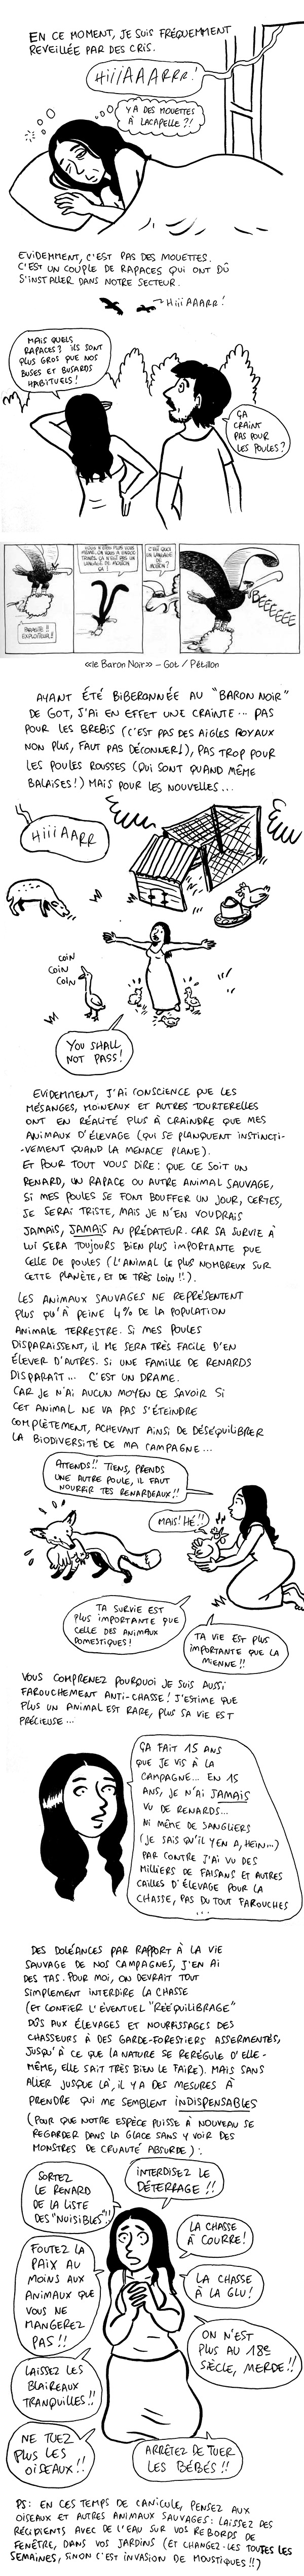 EN CE MOMENT, JE SUIS FRÉQUEMMENT
REVEILLÉE PAR DES CRIS.
HiiiAAARRR!
Y A DES MOUETTES
À LACAPELLE?!
EVIDEMMENT, C'EST PAS DES MOUETTES.
C'EST UN COUPLE DE RAPACES QUI ONT DÛ
S'INSTALLER DANS NOTRE SECTEUR.
HiiiAAARR!
MAIS QUELS
RAPACES? ILS SONT
PLUS GROS QUE NOS
BUSES ET BUSARDS
HABITUELS!
ÇA
CRAINT
PAS POUR
LES POULES?
EXPLOITEUR!
BEEEEEE
«le Baron Noir» – Got / Pétillon
AYANT ÉTÉ BIBERONNÉE AU "BARON NOIR"
DE GOT, J'AI EN EFFET UNE CRAINTE... PAS
POUR LES BREBIS (C'EST PAS DES AIGLES ROYAUX
NON PLUS, FAUT PAS DÉCONNER!), PAS TROP POUR
LES POULES ROUSSES (QUI SONT QUAND MÊME
BALAISES!) MAIS POUR LES NOUVELLES...
HiiiAARR
COIN
COIN
COIN
YOU SHALL
NOT PASS!
EVIDEMMENT, J'AI CONSCIENCE QUE LES
MÉSANGES, MOINEAUX ET AUTRES TOURTERELLES
ONT EN RÉALITÉ PLUS À CRAINDRE QUE MES
ANIMAUX D'ÉLEVAGE (QUI SE PLANQUENT INSTINCTI-
-VEMENT QUAND LA MENACE PLANE).
ET POUR TOUT VOUS DIRE: QUE CE SOIT UN
RENARD, UN RAPACE OU AUTRE ANIMAL SAUVAGE,
SI MES POULES SE FONT BOUFFER UN JOUR, CERTES,
JE SERAI TRISTE, MAIS JE N'EN VOUDRAIS
JAMAIS, JAMAIS AU PRÉDATEUR. CAR SA SURVIE À
LUI SERA TOUJOURS BIEN PLUS IMPORTANTE QUE
CELLE DE POULES (L'ANIMAL LE PLUS NOMBREUX SUR
CETTE PLANÈTE, ET DE TRÈS LOIN!!).
LES ANIMAUX SAUVAGES NE REPRÉSENTENT
PLUS QU'À PEINE 4% DE LA POPULATION
ANIMALE TERRESTRE. SI MES POULES
DISPARAISSENT, IL ME SERA TRÈS FACILE D'EN
ÉLEVER D'AUTRES. SI UNE FAMILLE DE RENARDS
DISPARAÎT... C'EST UN DRAME.
CAR JE N'AI AUCUN MOYEN DE SAVOIR SI
CET ANIMAL NE VA PAS S'ÉTEINDRE
COMPLÈTEMENT, ACHEVANT AINSI DE DÉSÉQUILIBRER
LA BIODIVERSITÉ DE MA CAMPAGNE...
ATTENDS!! TIENS, PRENDS
UNE AUTRE POULE, IL FAUT
NOURRIR TES RENARDEAUX!!
MAIS! HÉ!!
TA SURVIE EST
PLUS IMPORTANTE QUE
CELLE DES ANIMAUX
DOMESTIQUES!
TA VIE EST PLUS
IMPORTANTE QUE LA
MIENNE!!
VOUS COMPRENEZ POURQUOI JE SUIS AUSSI
FAROUCHEMENT ANTI-CHASSE! J'ESTIME QUE
PLUS UN ANIMAL EST RARE, PLUS SA VIE EST
PRÉCIEUSE...
ÇA FAIT 15 ANS
QUE JE VIS À LA
CAMPAGNE... EN 15
ANS, JE N'AI JAMAIS
VU DE RENARDS...
NI MÊME DE SANGLIERS
(JE SAIS QU'IL Y EN A, HEIN...)
PAR CONTRE J'AI VU DES
MILLIERS DE FAISANS ET AUTRES
CAILLES D'ÉLEVAGE POUR LA
CHASSE, PAS DU TOUT FAROUCHES
...
DES DOLÉANCES PAR RAPPORT À LA VIE
SAUVAGE DE NOS CAMPAGNES, J'EN AI
DES TAS. POUR MOI, ON DEVRAIT TOUT
SIMPLEMENT INTERDIRE LA CHASSE
(ET CONFIER L'ÉVENTUEL "RÉÉQUILIBRAGE"
DÛS AUX ÉLEVAGES ET NOURRISSAGES DES
CHASSEURS À DES GARDE-FORESTIERS ASSERMENTÉS,
JUSQU'À CE QUE LA NATURE SE RÉGULE D'ELLE-
MÊME, ELLE SAIT TRÈS BIEN LE FAIRE). MAIS SANS
ALLER JUSQUE LÀ, IL Y A DES MESURES À
PRENDRE QUI ME SEMBLENT INDISPENSABLES
(POUR QUE NOTRE ESPÈCE PUISSE À NOUVEAU SE
REGARDER DANS LA GLACE SANS Y VOIR DES
MONSTRES DE CRUAUTÉ ABSURDE):
SORTEZ
LE RENARD
DE LA LISTE
DES "NUISIBLES"!!
INTERDISEZ LE
DÉTERRAGE!!
LA CHASSE
À COURRE!
FOUTEZ LA
PAIX AU
MOINS AUX
ANIMAUX QUE
VOUS NE
MANGEREZ
PAS!!
LA CHASSE
À LA GLU!
ON N'EST
PLUS AU 18e
SIÈCLE, MERDE!!
LAISSEZ LES
BLAIREAUX
TRANQUILLES!!
NE TUEZ
PLUS LES
OISEAUX!!
ARRÊTEZ DE TUER
LES BÉBÉS!!
PS: EN CES TEMPS DE CANICULE, PENSEZ AUX
OISEAUX ET AUTRES ANIMAUX SAUVAGES: LAISSEZ DES
RÉCIPIENTS AVEC DE L'EAU SUR VOS REBORDS DE
FENÊTRE, DANS VOS JARDINS (ET CHANGEZ-LES TOUTES LES
SEMAINES, SINON C'EST INVASION DE MOUSTIQUES!!)